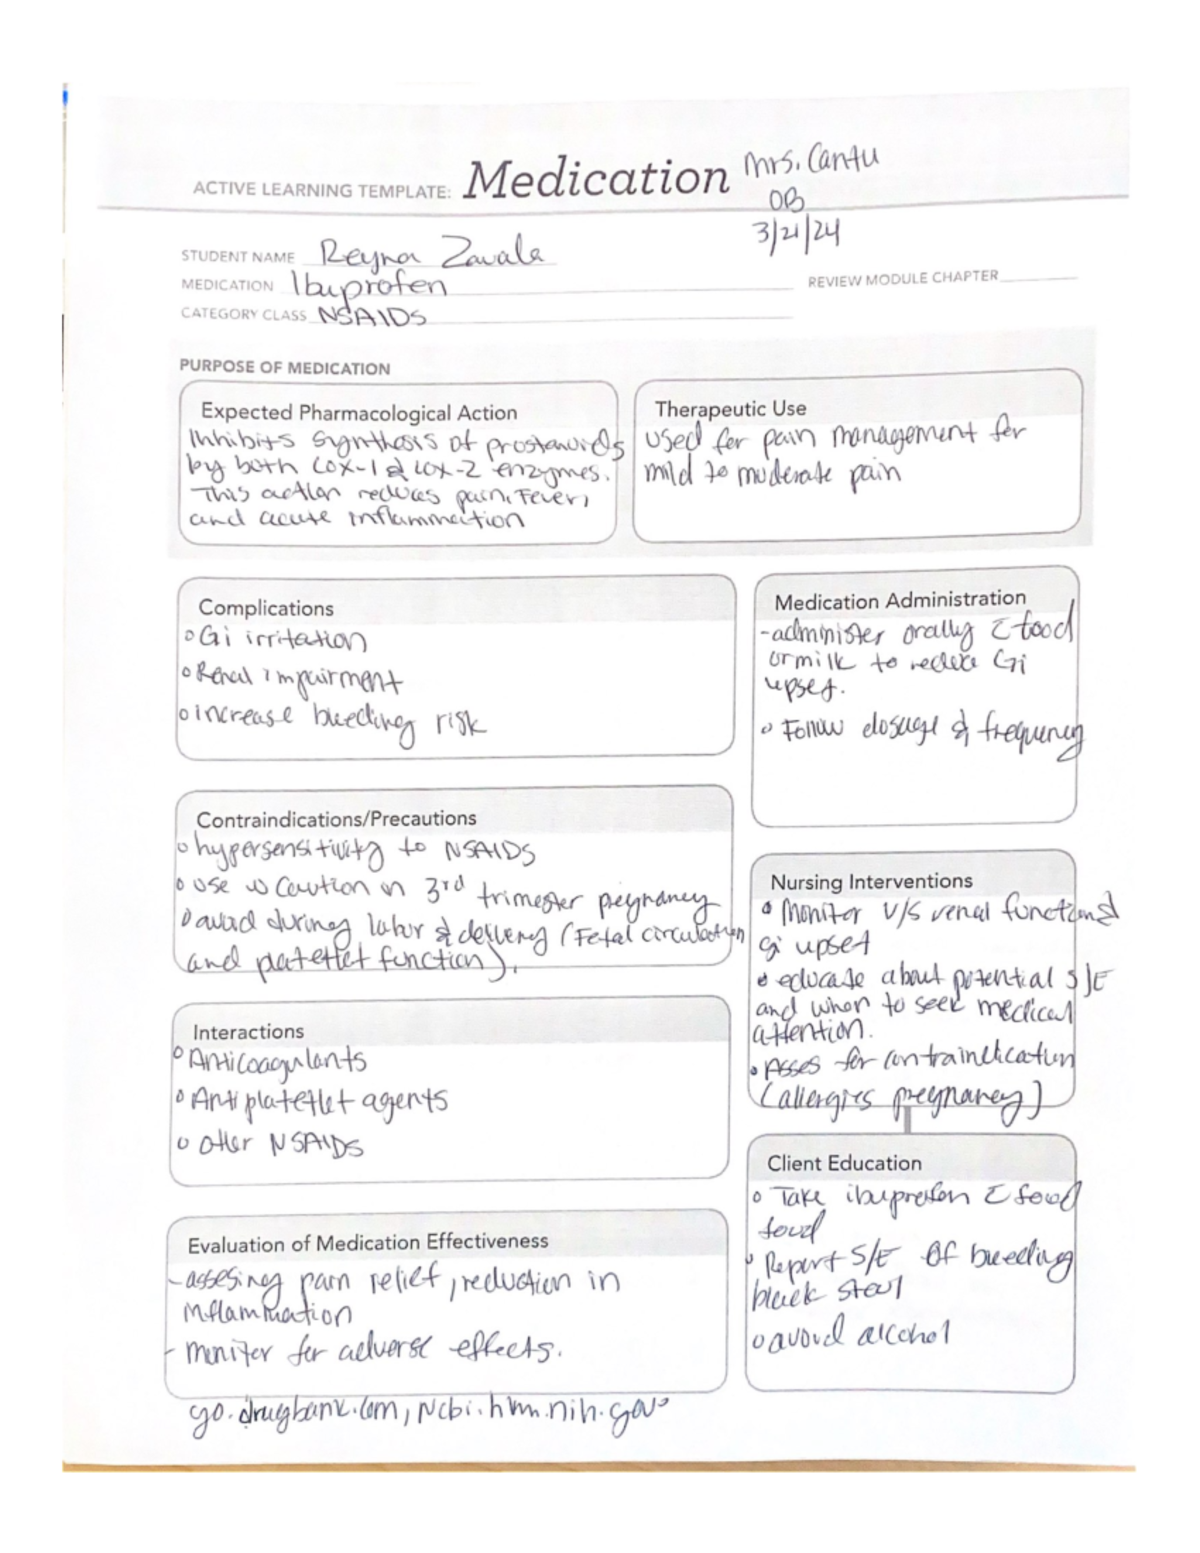 ACTIVE LEARNING TEMPLATE: Medication
Mrs. Cantu
OB
3/21/24
STUDENT NAME Reyna Zavala
MEDICATION Ibuprofen
REVIEW MODULE CHAPTER
CATEGORY CLASS NSAIDs
PURPOSE OF MEDICATION
Expected Pharmacological Action
Inhibits synthesis of prostanoids
by both COX-1 & COX-2 enzymes.
This action reduces pain, Fever,
and acute inflammation
Therapeutic Use
used for pain management for
mild to moderate pain
Complications
Gi irritation
Renal impairment
increase bleeding risk
Medication Administration
-administer orally c̄ food
or milk to reduce Gi
upset.
Follow dosage & frequency
Contraindications/Precautions
hypersensitivity to NSAIDs
Use w caution in 3rd trimester pregnancy
avoid during labor & delivery (Fetal circulation
and platetlet function).
Nursing Interventions
Monitor v/s renal function &
gi upset
educate about potential S/E
and when to seek medical
attention.
Asses for contraindication
(allergies pregnancy)
Interactions
Anticoagulants
Antiplatetlet agents
other NSAIDs
Client Education
Take ibuprofen c̄ food
food
Report S/E of bleeding
black stool
avoid alcohol
Evaluation of Medication Effectiveness
-assesing pain relief, reduction in
inflammation
- moniter for adverse effects.
go.drugbank.com, ncbi.hlm.nih.gov